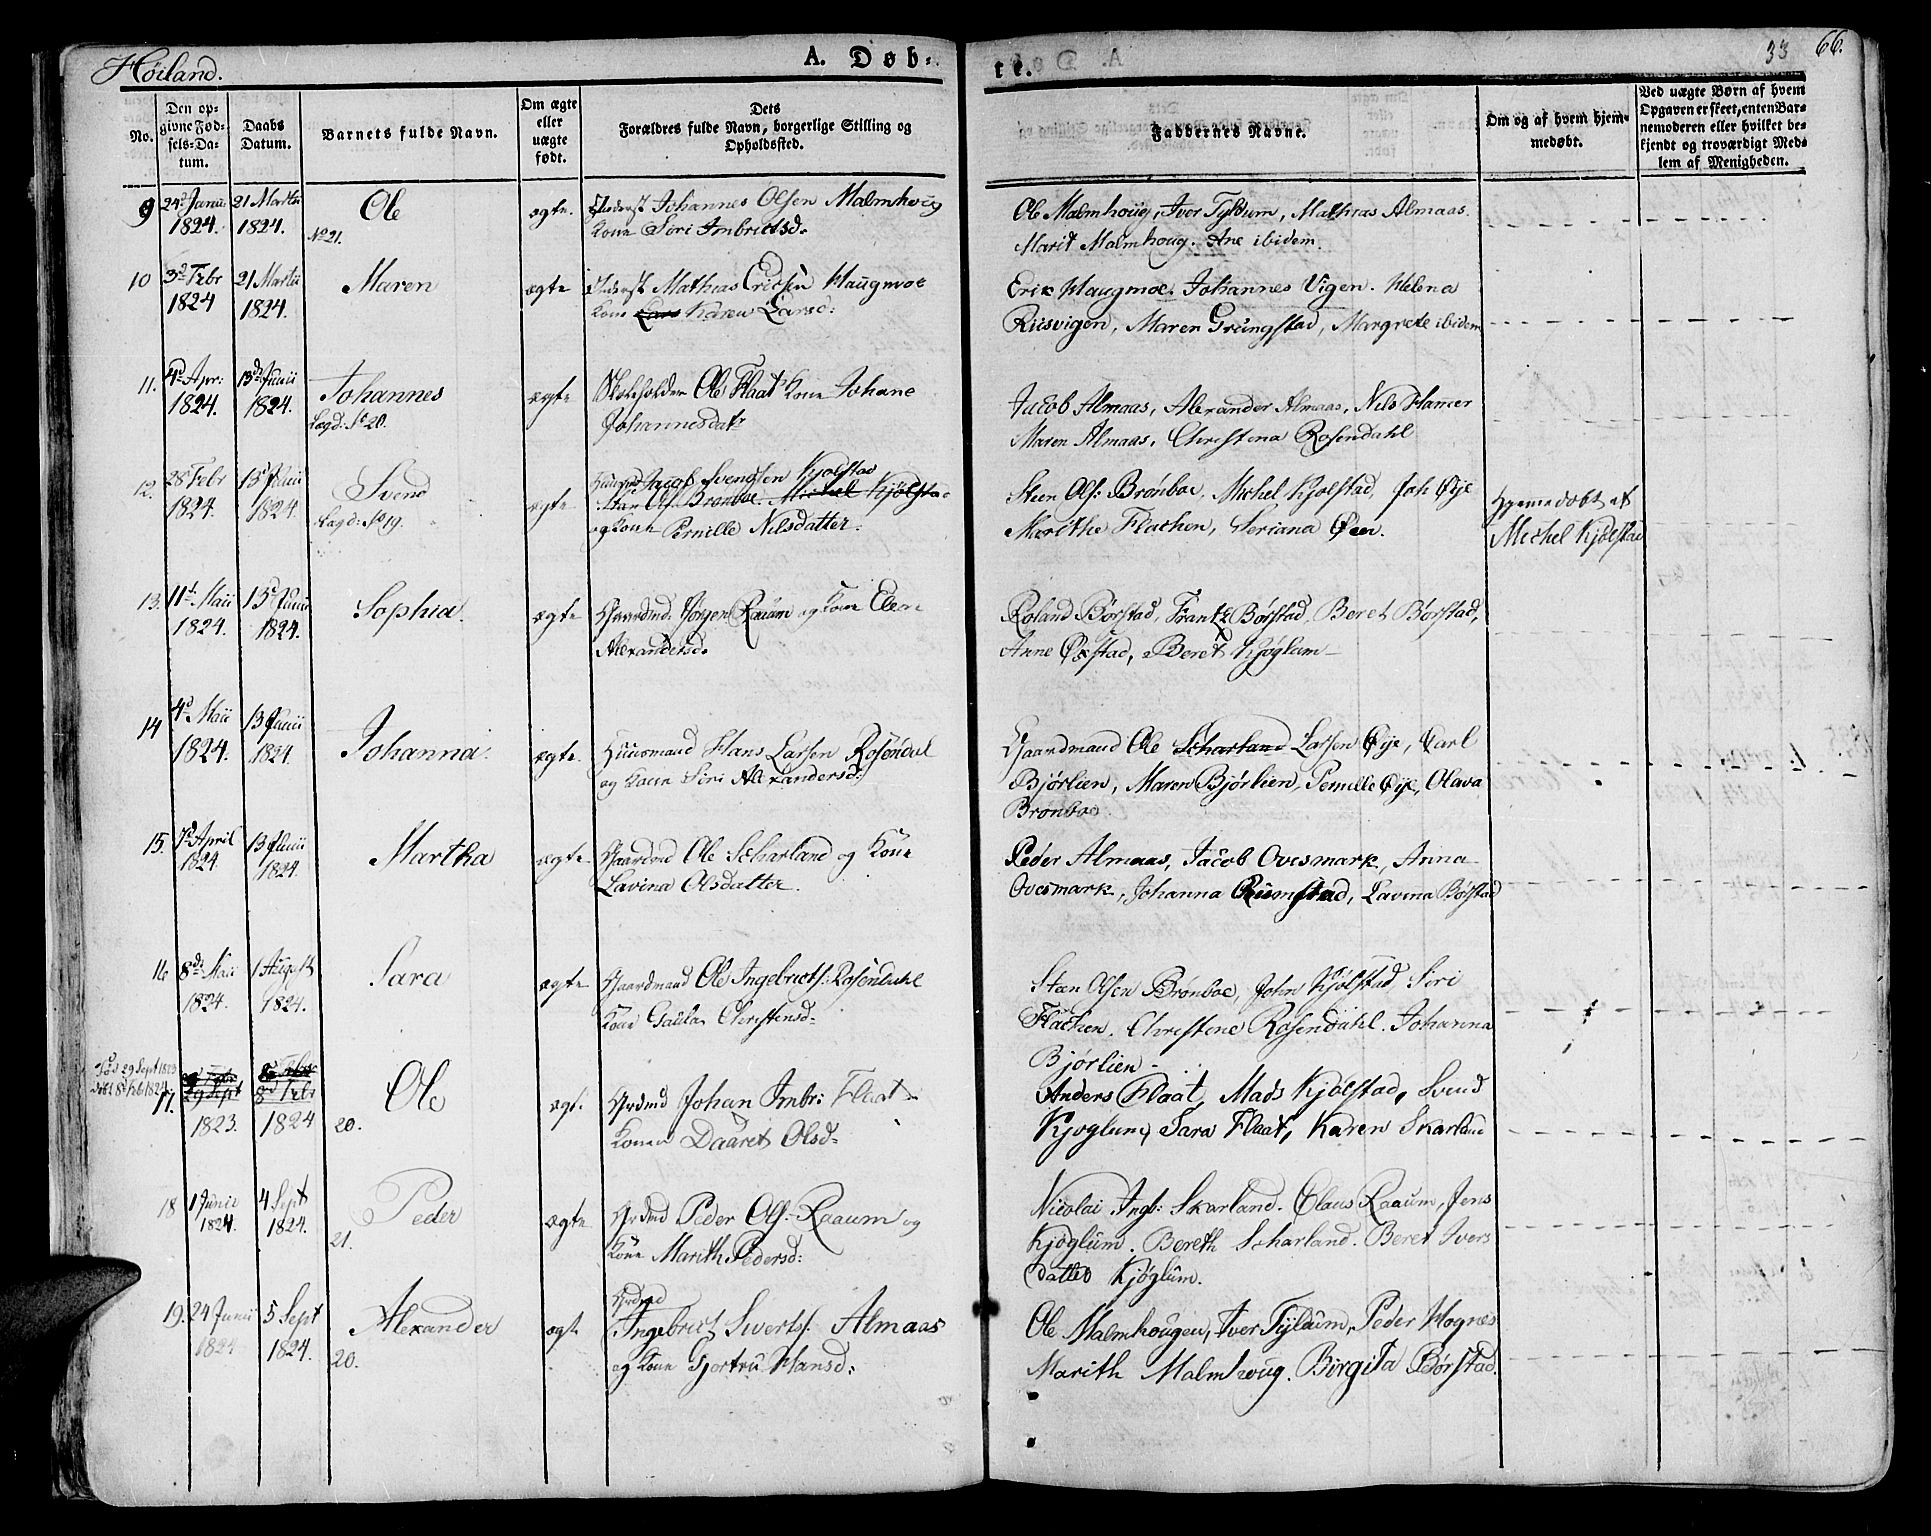 Høiland.
A. Døb-
te.
33
66.
No.
Den op-
givne Fød-
sels-Da-
tum.
Daabs
Datum.
Barnets fulde Navn.
Om ægte
eller
uægte
født.
Dets
Forældres fulde Navn, borgerlige Stilling og
Opholdssted.
Faddernes Navne.
Om og af hvem hjem-
medøbt.
Ved uægte Børn af hvem
Opgaven er skeet, enten Bar-
nemoderen eller hvilket be-
kjendt og troværdigt Med-
lem af Menigheden.
9
24d Janu
1824.
21 Martii
1824.
Ole
No 21.
ægte.
Johannes Olsen Malmhoug
Kone Siri Imbrictsd.
Ole Malmhoug, Iver Tyldum, Mathias Almaas.
Marit Malmhoug. Ane ibidem.
10
3d Febr
1824
21 Martii
1824.
Maren
ægte
Mathias Ericsen Haugmoe
Kone Lars Karen Larsd:
Erik Haugmoe. Johannes Vigen. Helena
Riisvigen, Maren Grüngstad, Margrete ibidem
11.
4d Apr:
1824.
13d Junii
1824.
Johannes
Lagd: No 20.
ægte
Ole Flaat Kone Johane
Johannesdatr
Jacob Almaas, Alexander Almaas, Nils Hamer
Maren Almaas, Christena Rosendahl
12.
28 Febr
1824.
13d Junii
1824.
Svend
Lagd: No 19.
ægte
Jacob Svendsen Kjølstad
Sten Ols: Brønboe. Michel Kjølstad
og Kone Pernille Nilsdatter.
Steen Ols: Brønboe, Michel Kjølstad, Joh Øye
Marithe Flachen, Seriana Øen.
Hjemmedøbt af
Michel Kjølstad
13.
11t Maii
1824.
13d Junii
1824.
Sophia.
ægte
Gaardmd. Jørgen Raaum og Kone Elen
Alexandersd.
Roland Børstad, Frantz Børstad, Beret Børstad,
Anne Øxstad, Beret Kjøglum
14
4d Maii
1824.
13 Junii
1824.
Johanna.
ægte.
Huusmand Hans Larsen Rosendal
og Kone Siri Alexandersd:
Gaardmand Ole Scharland Larsen Øye, Carl
Bjørlien, Maren Bjørlien, Pernille Øye, Olava
Brønboe
15.
7d April
1824.
13 Junii
1824.
Martha
ægte
Gaardmd Ole Scharland og Kone
Lavina Olsdatter.
Peder Almaas, Jacob Ovesmark, Anna
Ovesmark, Johanna Rumstad, Lavina Børstad
16
8d Maii
1824.
1 August
1824.
Sara
ægte
Gaardmand Ole Ingebricts: Rosendahl
Kone Christensd.
Steen Olsen Brønboe, John Kjølstad Siri
Flachen. Christene Rosendahl. Johanna
Bjørlien
Fød 29 Sept 1823
Døbt 8d Feb 1824
17.
29 Sept
1823.
8d Febr
1824
Ole
20.
ægt.
Grdmd Johan Imbr: Flaat
Konen Daaret Olsd.
Anders Flaat, Mads Kjølstad, Svend
Kjøglum, Sara Flaat, Karen Skarland
18
1 Junii
1824.
4 Sept
1824.
Peder
21.
ægte
Grdmd Peder Ols: Raaum og
Kone Marith Pedersd:
Nicolai Ingb: Skarland. Claus Raaum, Jens
Kjøglum. Bereth Scharland. Beret Ivers
datter Kjøglum.
19.
24 Junii
1824
5 Sept
1824.
Alexander
20.
ægt
Grdmd
Ingebrict Siverts: Almaas
og Kone Gjertru Hansd:
Ole Malmhougen, Iver Tyldum, Peder Hognes
Marith Malmhoug. Birgita Børstad.